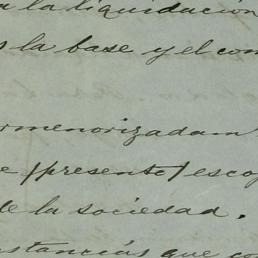 a la liquidación
s la base y el con
ormenorizadam
e (presente) esco
de la sociedad.
nstancias que co